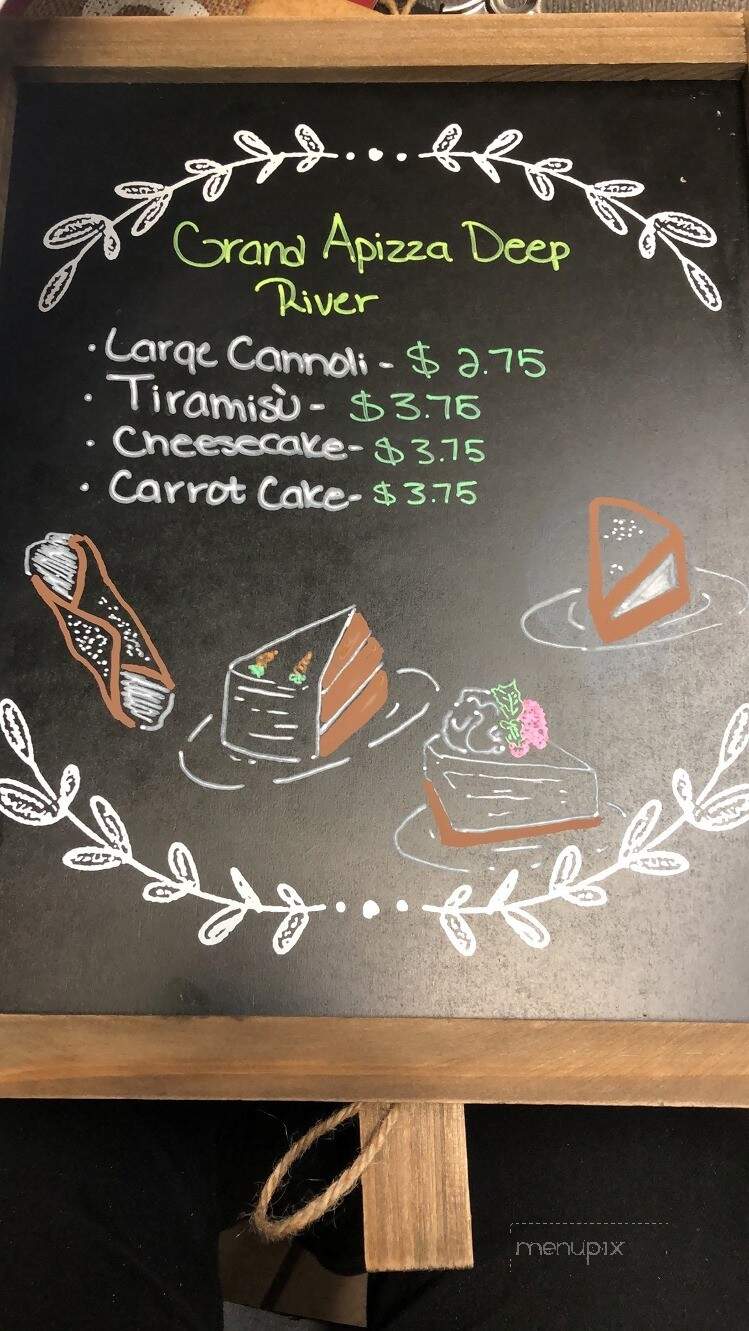 Grand Apizza Deep
River
• Large Cannoli - $ 2.75
• Tiramisù - $3.75
• Cheesecake - $3.75
• Carrot Cake - $3.75
menupix